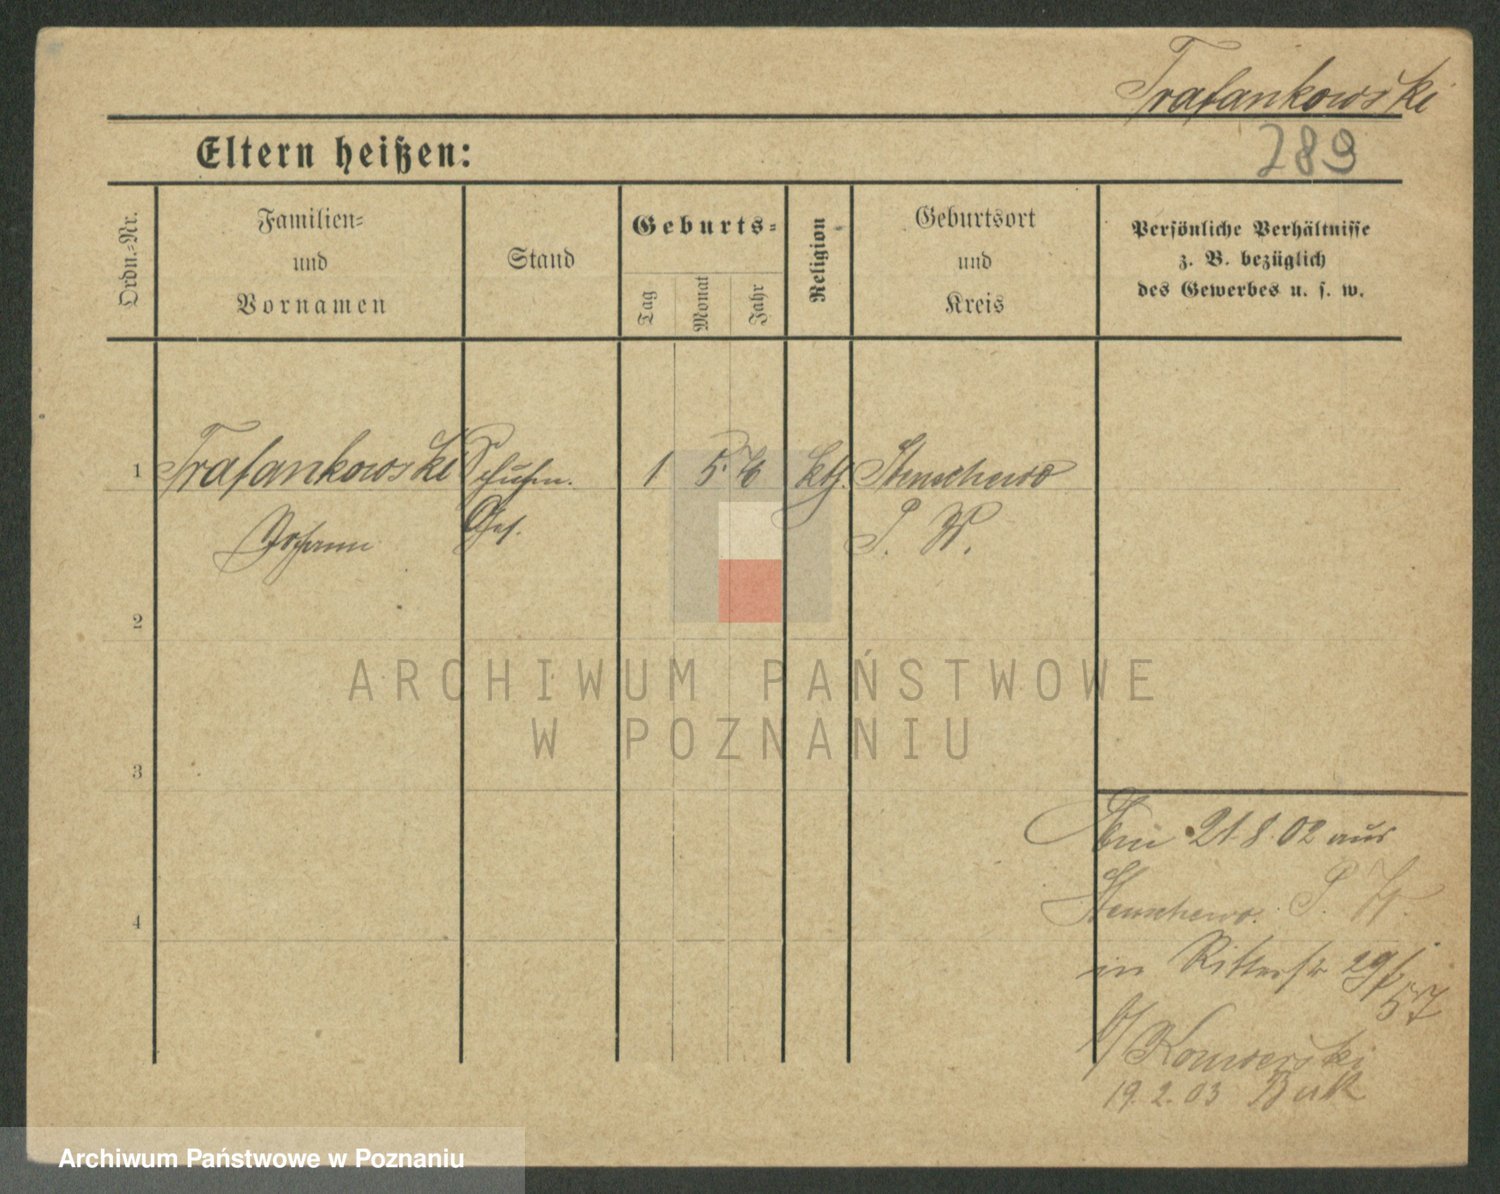 Trafankowski
289
Eltern heißen:
Ordn.=Nr.
Familien=
und
Vornamen
Stand
Geburts=
Tag
Monat
Jahr
Religion
Geburtsort
und
Kreis
Persönliche Verhältnisse
z. B. bezüglich
des Gewerbes u. s. w.
1 Trafankowski Schuhm. 1 5. kth. Stenschewo
Johann Ges. P. W.
2
3
4
21.8.02 aus
Stenschewo. P. W.
in Ritterstr 29
57
b/ Konwerski
19.2.03 Buk
ARCHIWUM PAŃSTWOWE
W POZNANIU
Archiwum Państwowe w Poznaniu